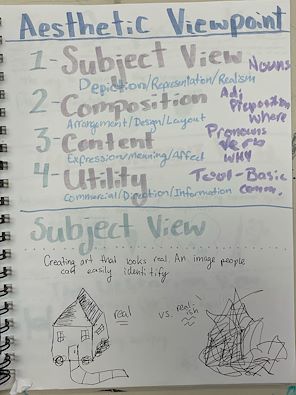 Aesthetic Viewpoint
1-Subject View Nouns
Depiction/Representation/Realism
2-Composition Adj
Preposition
Where
Arrangement/Design/Layout
3-Content Pronouns
Verb
Why
Expression/Meaning/Affect
4-Utility Tool-Basic
Comm.
Commercial/Direction/Information
Subject View
Creating art that looks real. An image people
can easily identitify
real vs. real-
ish